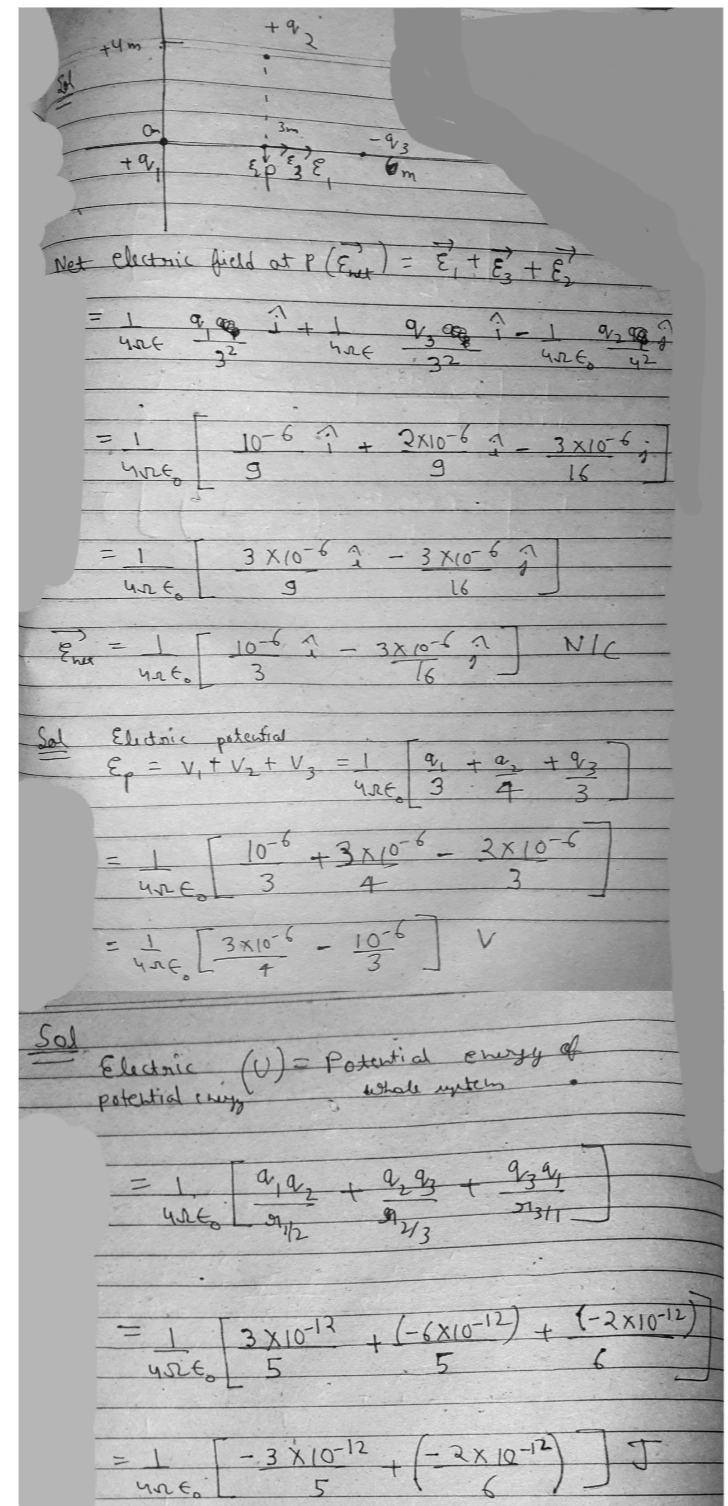 +q₂
+4m
Sol
0m 3m -q₃
+q₁ ε₂ P ε₃ ε₁ 6m
Net electric field at P (ε⃗net) = ε⃗₁ + ε⃗₃ + ε⃗₂
= 1/4πε q₁/3² î + 1/4πε q₃/3² î - 1/4πε₀ q₂/4² ĵ
= 1/4πε₀ [ 10⁻⁶/9 î + 2×10⁻⁶/9 î - 3×10⁻⁶/16 j ]
= 1/4πε₀ [ 3×10⁻⁶/9 î - 3×10⁻⁶/16 ĵ ]
ε⃗net = 1/4πε₀ [ 10⁻⁶/3 î - 3×10⁻⁶/16 ĵ ] N/C
Sol Electric potential
εp = V₁ + V₂ + V₃ = 1/4πε₀ [ q₁/3 + q₂/4 + q₃/3 ]
= 1/4πε₀ [ 10⁻⁶/3 + 3×10⁻⁶/4 - 2×10⁻⁶/3 ]
= 1/4πε₀ [ 3×10⁻⁶/4 - 10⁻⁶/3 ] V
Sol
Electric (U) = Potential energy of
potential energy whole system
= 1/4πε₀ [ q₁q₂/r1/2 + q₂q₃/r2/3 + q₃q₁/r3/1 ]
= 1/4πε₀ [ 3×10⁻¹²/5 + (-6×10⁻¹²)/5 + (-2×10⁻¹²)/6 ]
= 1/4πε₀ [ -3×10⁻¹²/5 + (-2×10⁻¹²/6) ] J